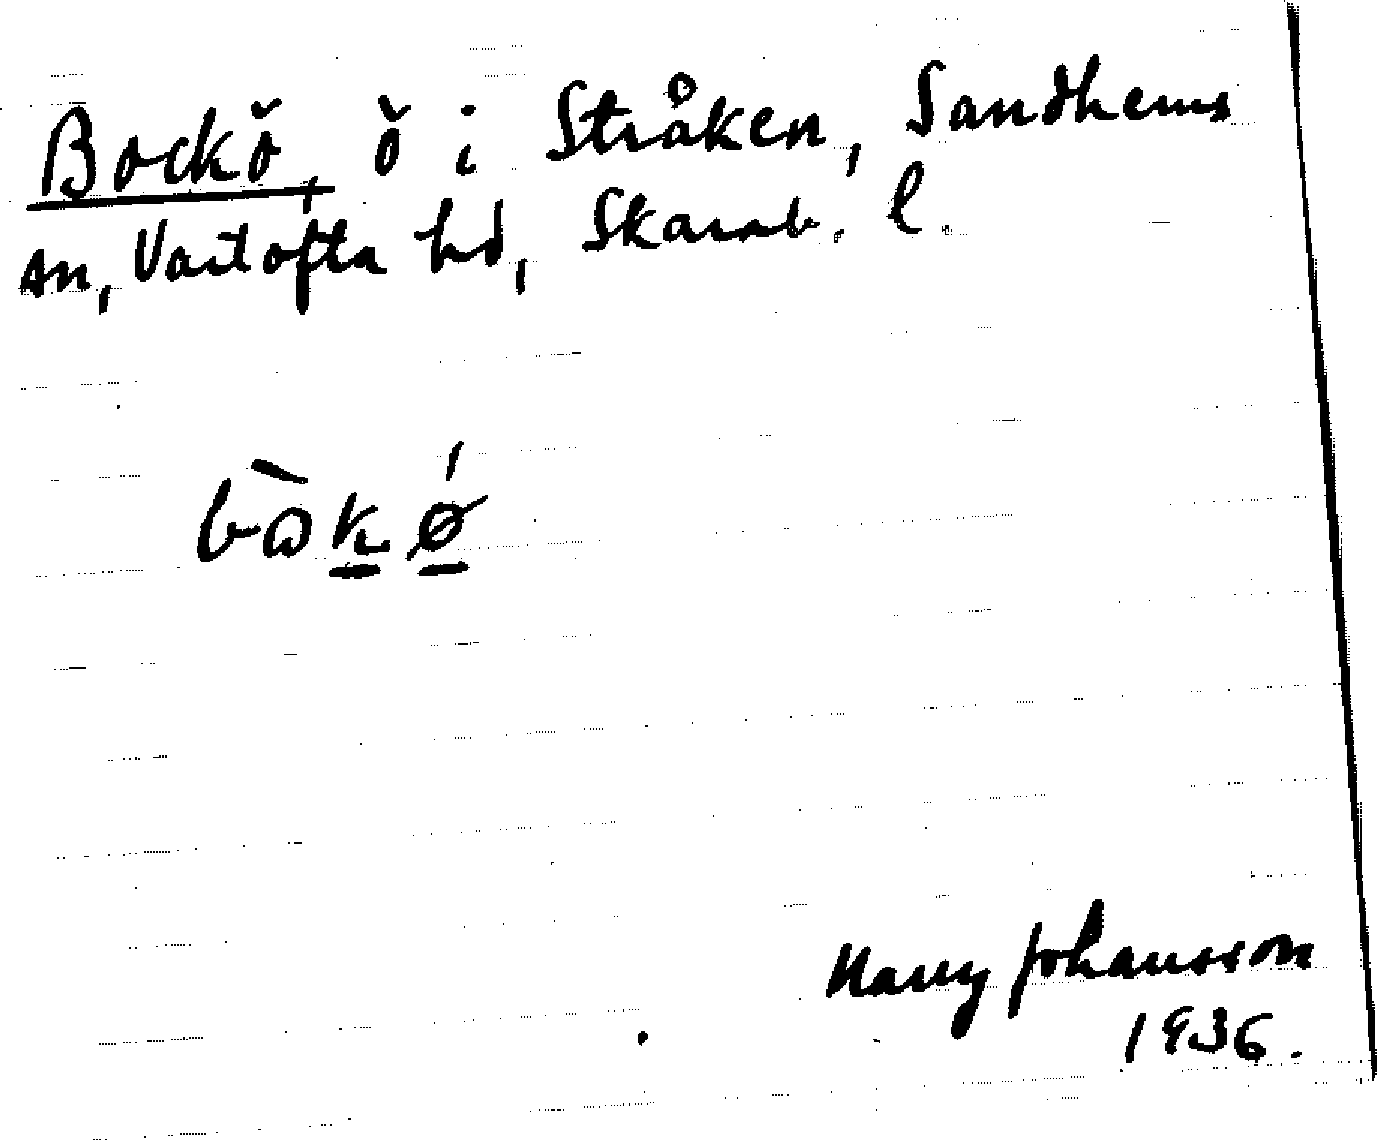 Bockö, ö i Stråken, Sandhems
sn, Vartofta hd, Skarab. l.
bòkǿ
Harry Johansson
1936.